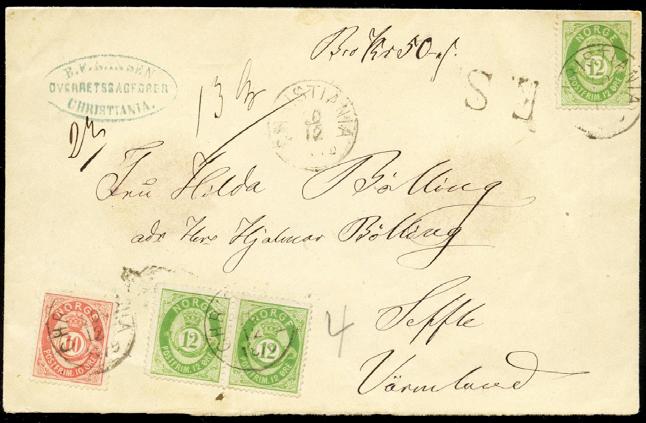 B. F. HANSEN
OVERRETSSAGFØRER
CHRISTIANIA.
NORGE
12
CHRISTIANIA
Fru Hilda Bölling
adr Herr Hjalmar Bölling
Seffle
Värmland
NORGE
10
POSTFRIM. 10 ØRE
NORGE
12
POSTFRIM. 12 ØRE
NORGE
12
POSTFRIM. 12 ØRE
4